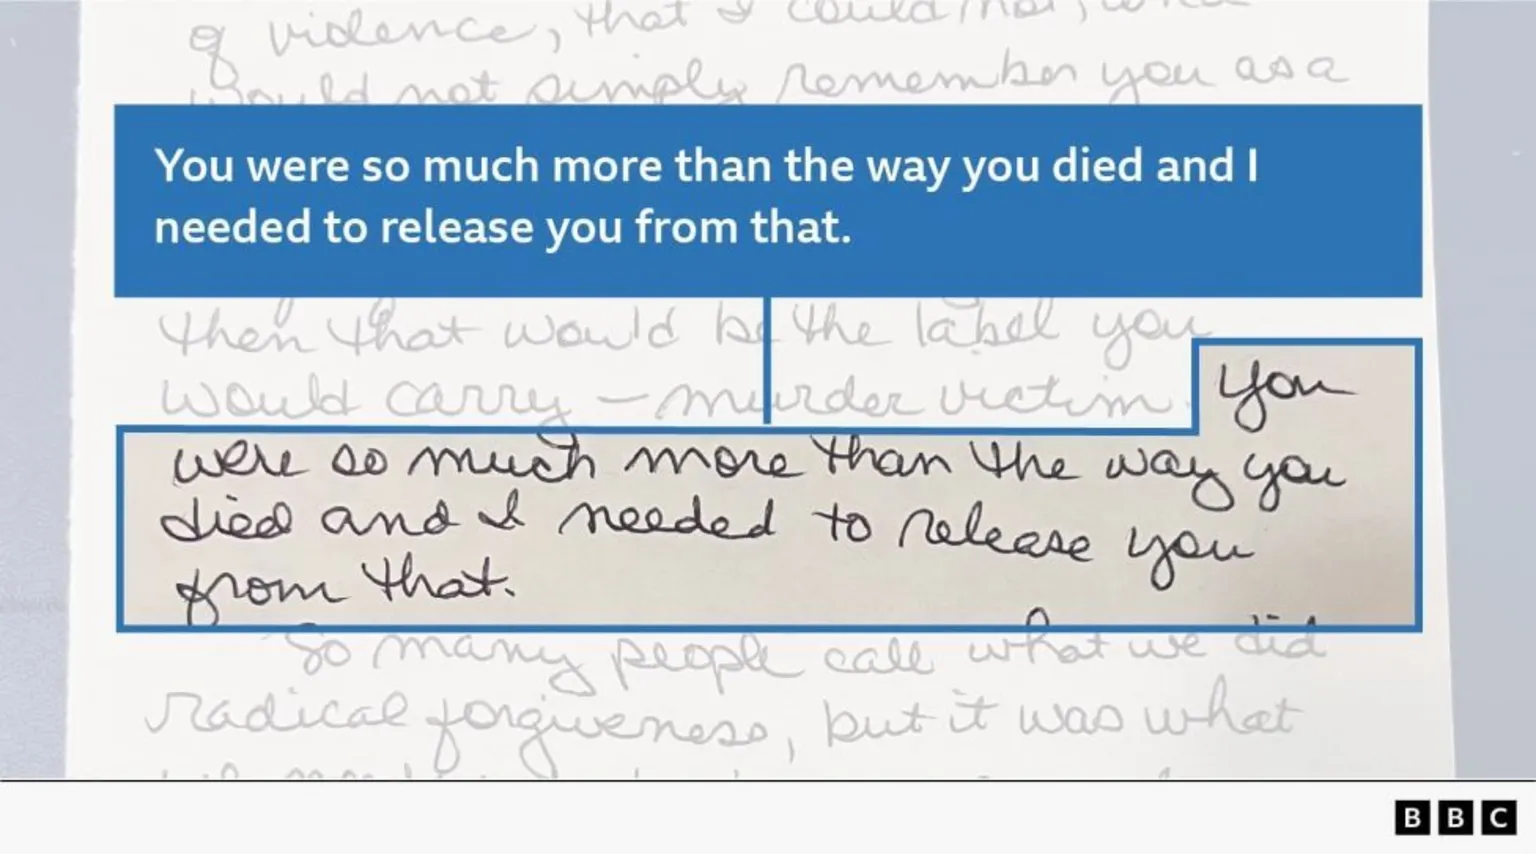 of vidence, that I could not,
would not simply remember you as a
You were so much more than the way you died and I
needed to release you from that.
then that would be the label you
would carry – murder victim. You
were so much more than the way you
died and I needed to release you
from that.
So many people call what we did
radical forgiveness, but it was what
BBC